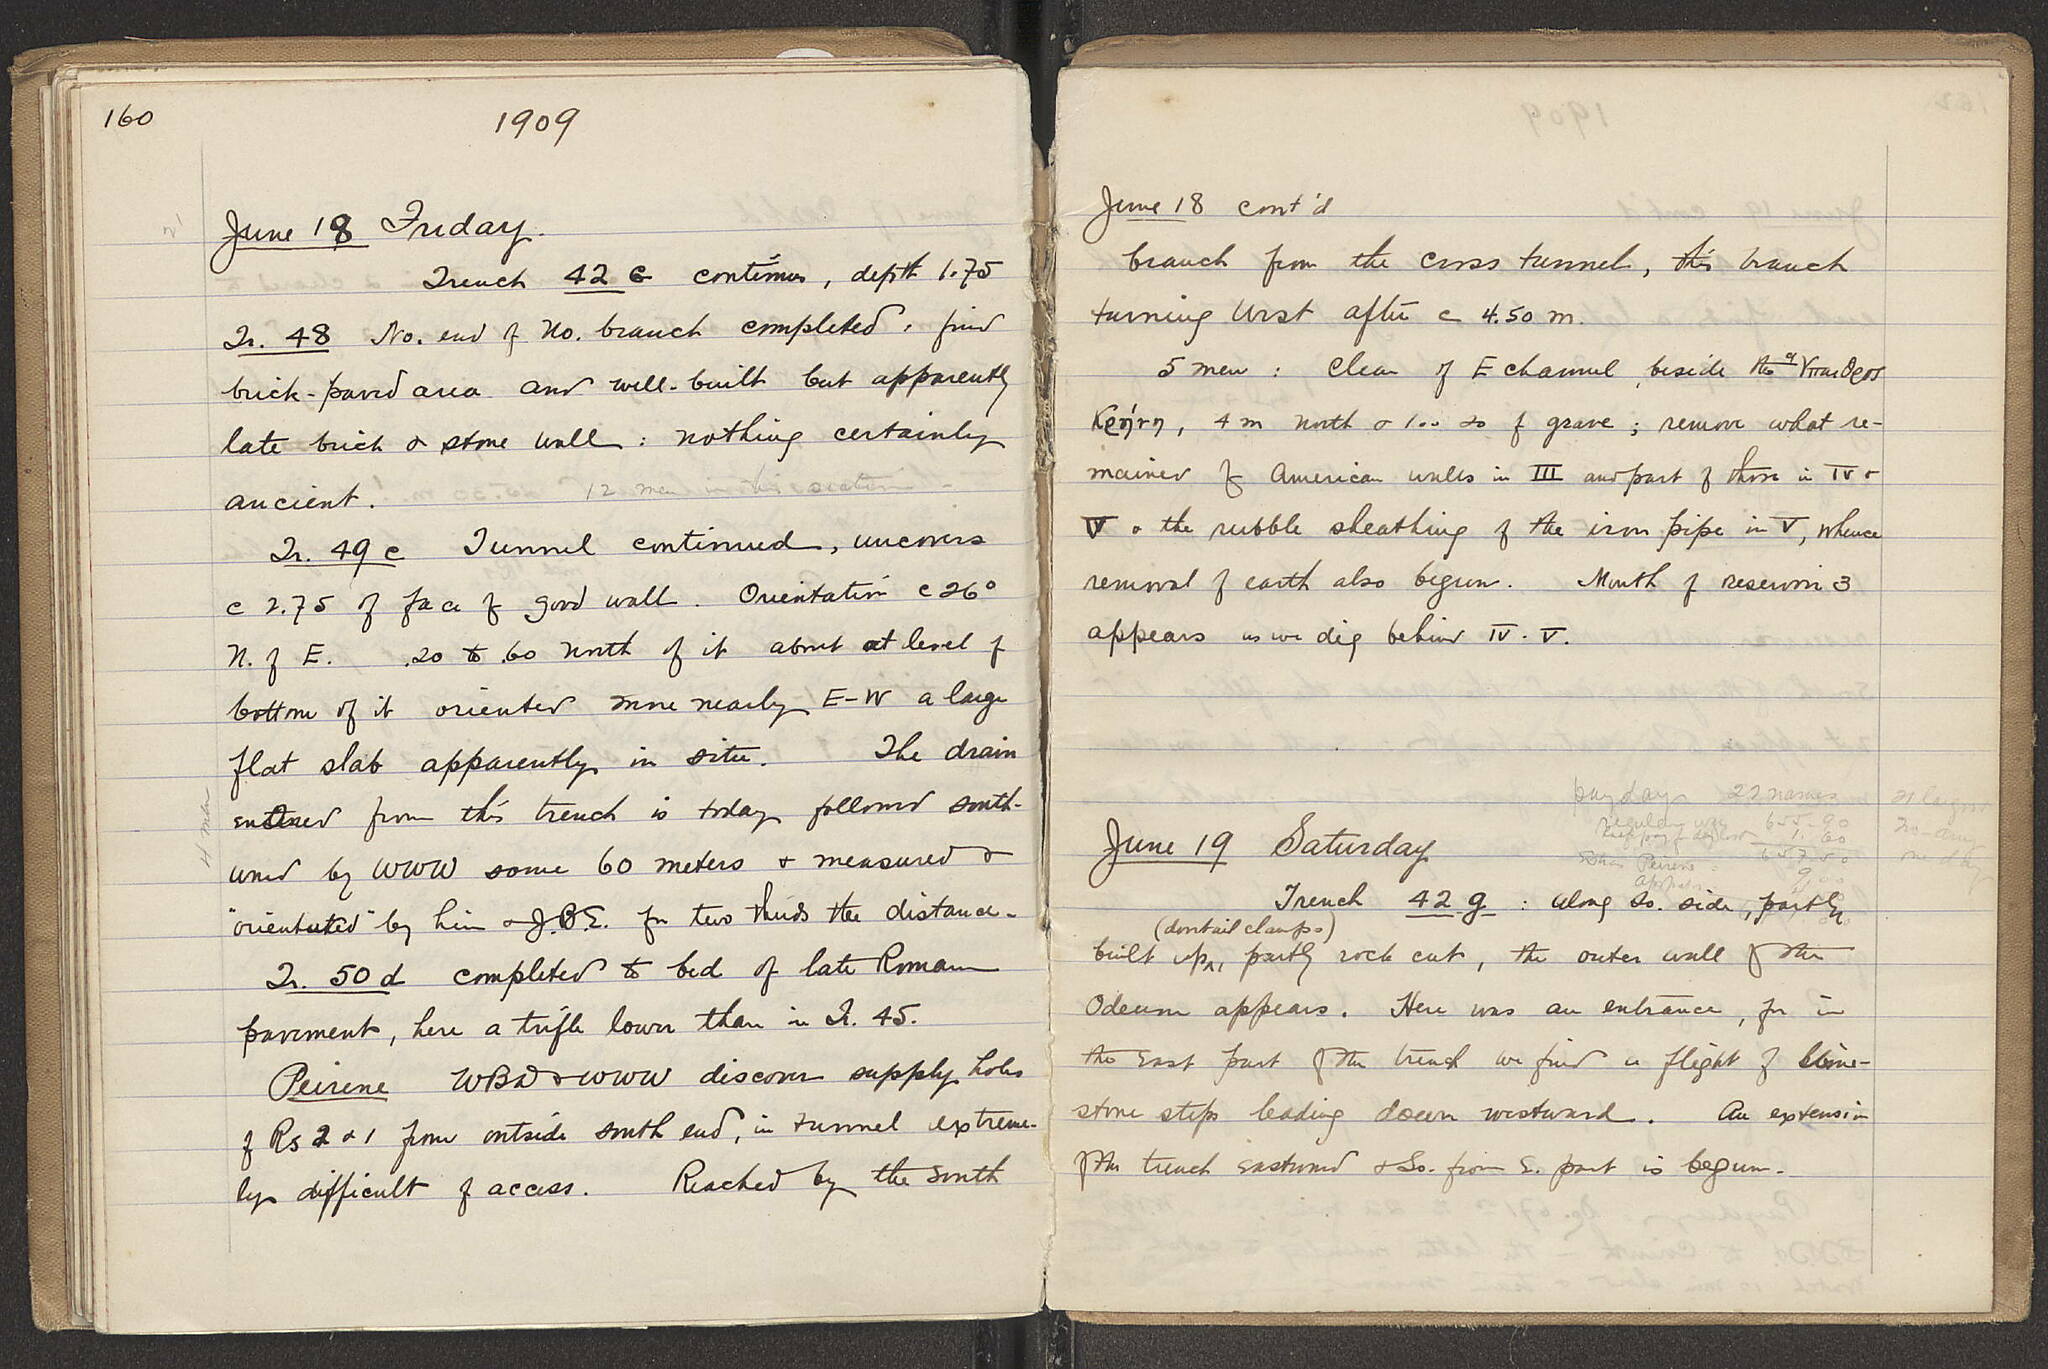 160
1909
June 18 Friday.
Trench 42 c continues, depth 1.75
Tr. 48 No. end of No. branch completed, find
brick-paved area and well-built but apparently
late brick & stone wall: nothing certainly
ancient. 12 men in this section
Tr. 49 c Tunnel continued, uncovers
c 2.75 of face of good wall. Orientation c 26°
N. of E. .20 to .60 north of it about at level of
bottom of it oriented more nearly E-W a large
flat slab apparently in situ. The drain
entered from this trench is today followed south-
4 men
ward by WWW some 60 meters & measured &
"orientated" by him & J.B.E. for two thirds the distance.
Tr. 50 d completed to bed of late Roman
pavement, here a trifle lower than in Tr. 45.
Peirene WBD & WWW discover supply holes
of Rs 2 & 1 from outside south end, in tunnel extreme-
ly difficult of access. Reached by the south
June 18 cont'd
branch from the cross tunnel, this branch
turning West after c 4.50 m.
5 men: Clear of E channel, beside the
4 m north & 1.. so of grave; remove what re-
mained of American walls in III and part of those in IV &
V & the rubble sheathing of the iron pipe in V, whence
removal of earth also begun. Mouth of reservoir 3
appears as we dig behind IV. V.
pay day 22 names
655.90
657.50
Peirene
June 19 Saturday
Trench 42 g: along So. side, partly
(dovtail clamps)
built up, partly rock cut, the outer wall of the
Odeum appears. Here was an entrance, for in
the East part of the trench we find a flight of lime-
stone steps leading down westward. An extension
of the trench eastward & So. from E. part is begun.